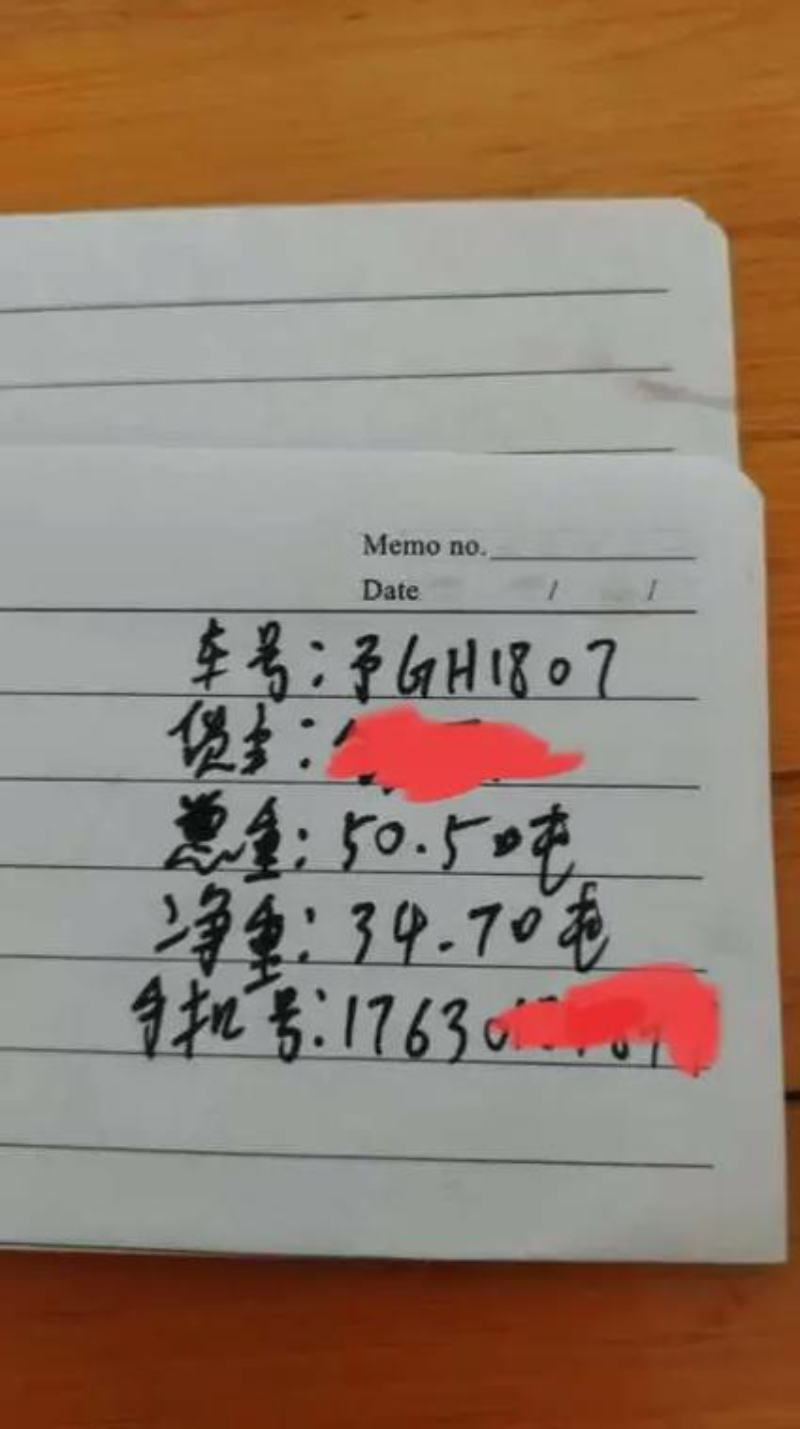 Memo no.
Date / /
车号:予GH1807
货主:
总重:50.50吨
净重:34.70吨
手机号:1763